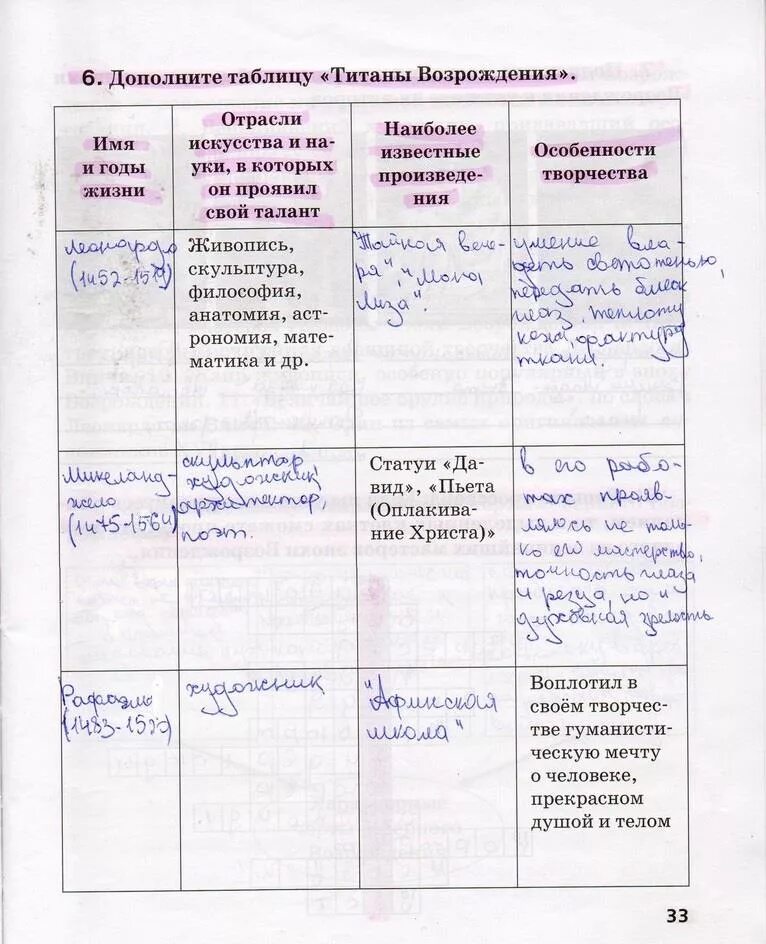 6. Дополните таблицу «Титаны Возрождения».
Имя
и годы
жизни
Отрасли
искусства и на-
уки, в которых
он проявил
свой талант
Наиболее
известные
произведе-
ния
Особенности
творчества
Леонардо
(1452-1519)
Живопись,
скульптура,
философия,
анатомия, аст-
рономия, мате-
матика и др.
"Тайная вече-
ря", "Мона
Лиза".
умение вла-
деть светотенью,
передать блеск
глаз, теплоту
кожи, фактуру
ткани.
Микеланд-
жело
(1475-1564)
скульптор
художник,
архитектор,
поэт.
Статуи «Да-
вид», «Пьета
(Оплакива-
ние Христа)»
в его рабо-
тах прояв-
лялось не толь-
ко его мастерство,
точность глаза
и резца, но и
духовная зрелость
Рафаэль
(1483-1520)
художник
"Афинская
школа"
Воплотил в
своём творчес-
тве гуманисти-
ческую мечту
о человеке,
прекрасном
душой и телом
33